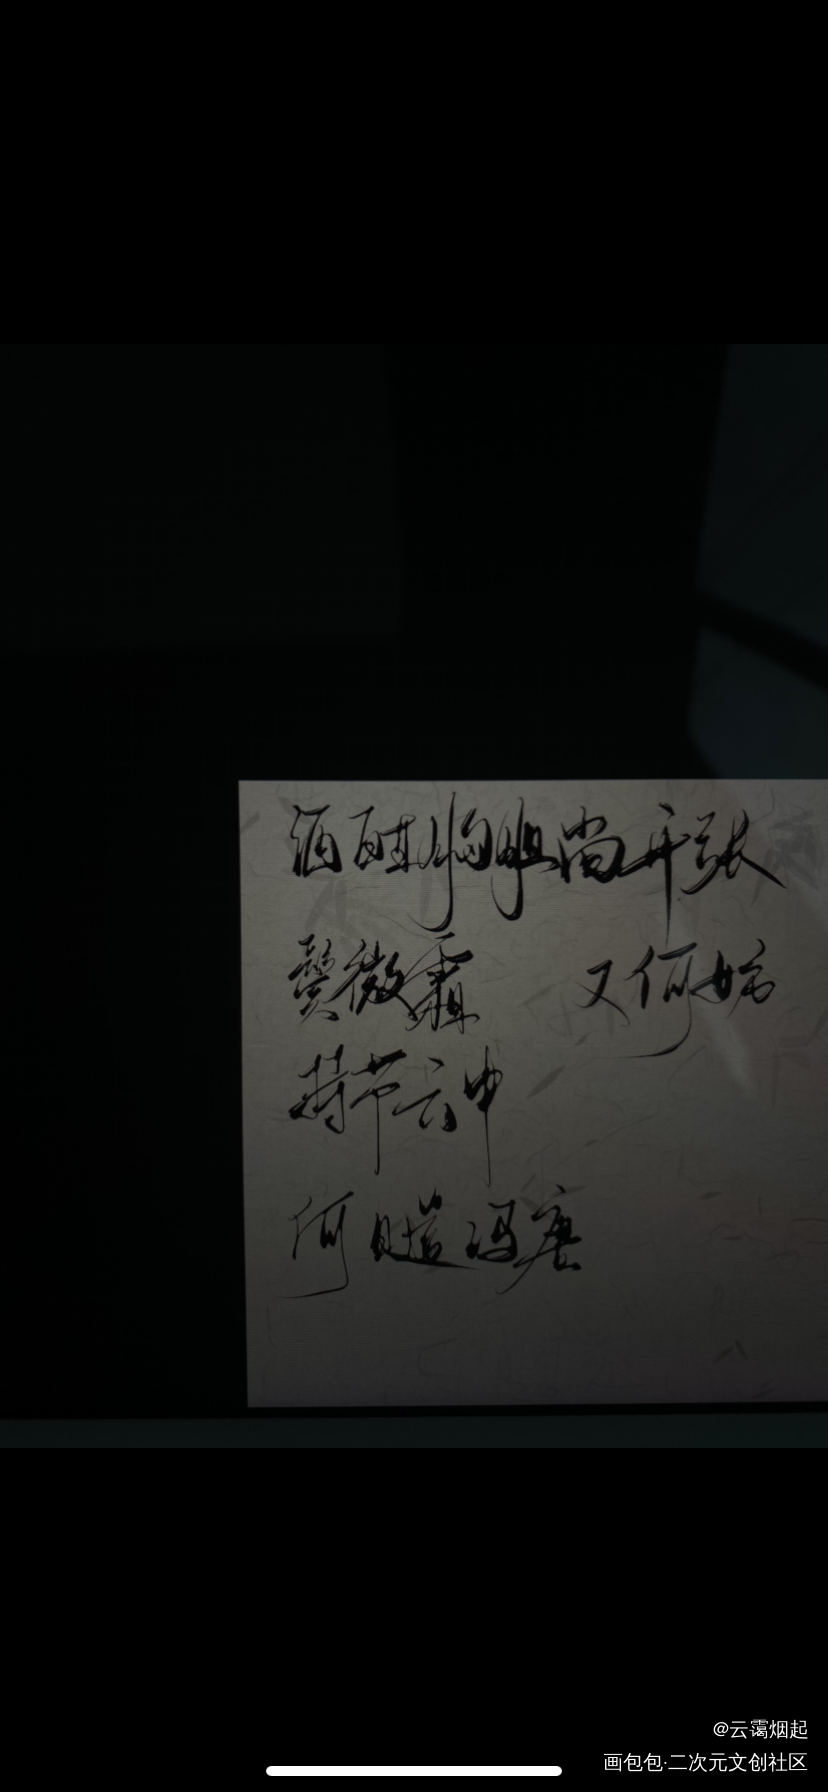 酒酣胸胆尚开张
鬓微霜 又何妨
持节云中
何日遣冯唐
@云霭烟起
画包包·二次元文创社区